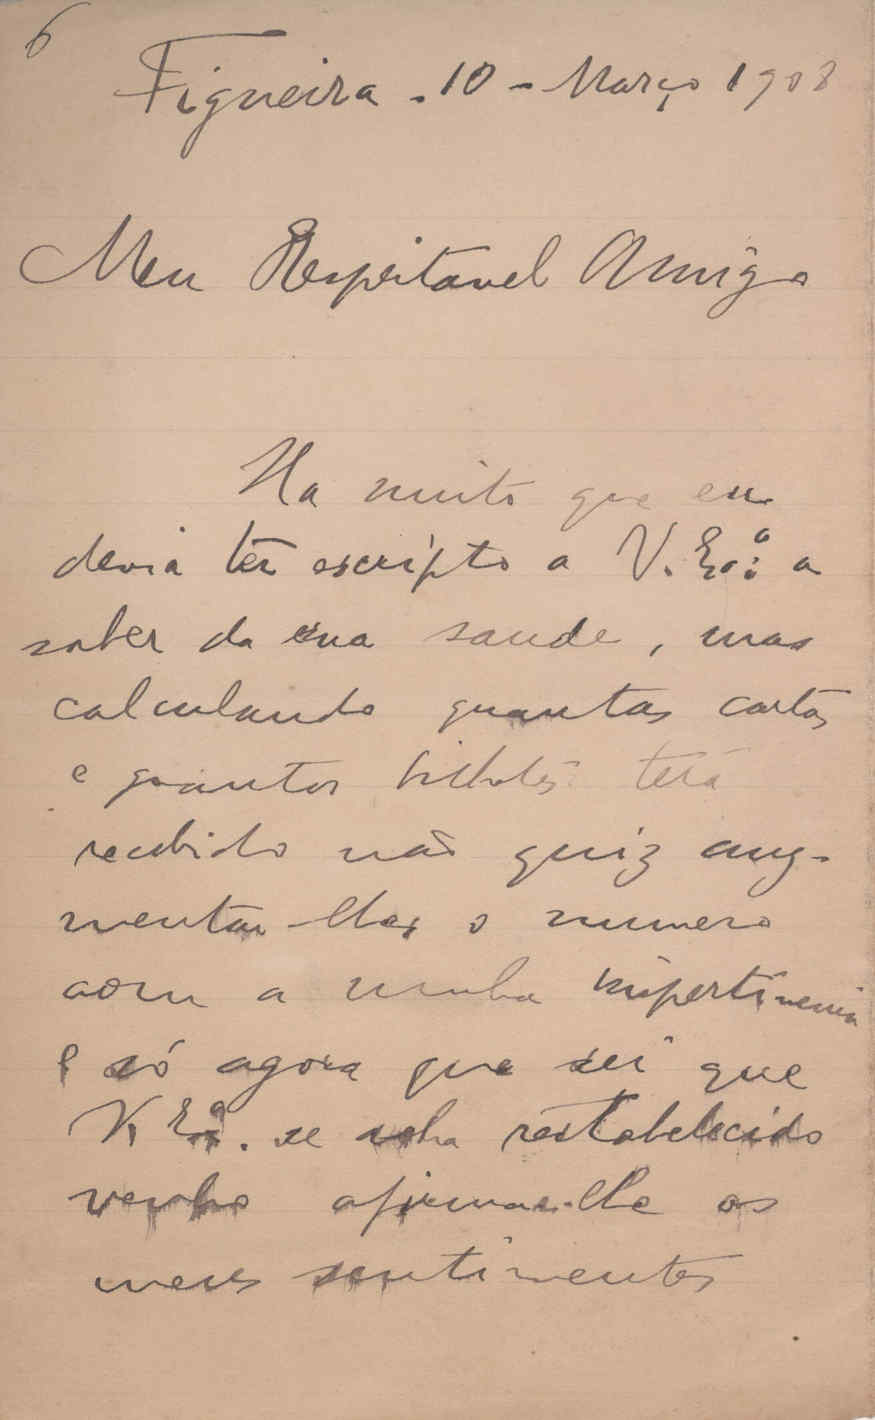 6
Figueira - 10 - Março 1908
Meu Respeitavel Amigo
Ha muito que eu
devia ter escripto a V. Ex.ª a
saber da sua saude, mas
calculando quantas cartas
e quantos bilhetes terá
recebido não quiz aug-
mentar-lhes o numero
com a minha impertinencia
e só agora que sei que
V. Exª. se acha restabelecido
venho afirmar-lhe os
meus sentimentos